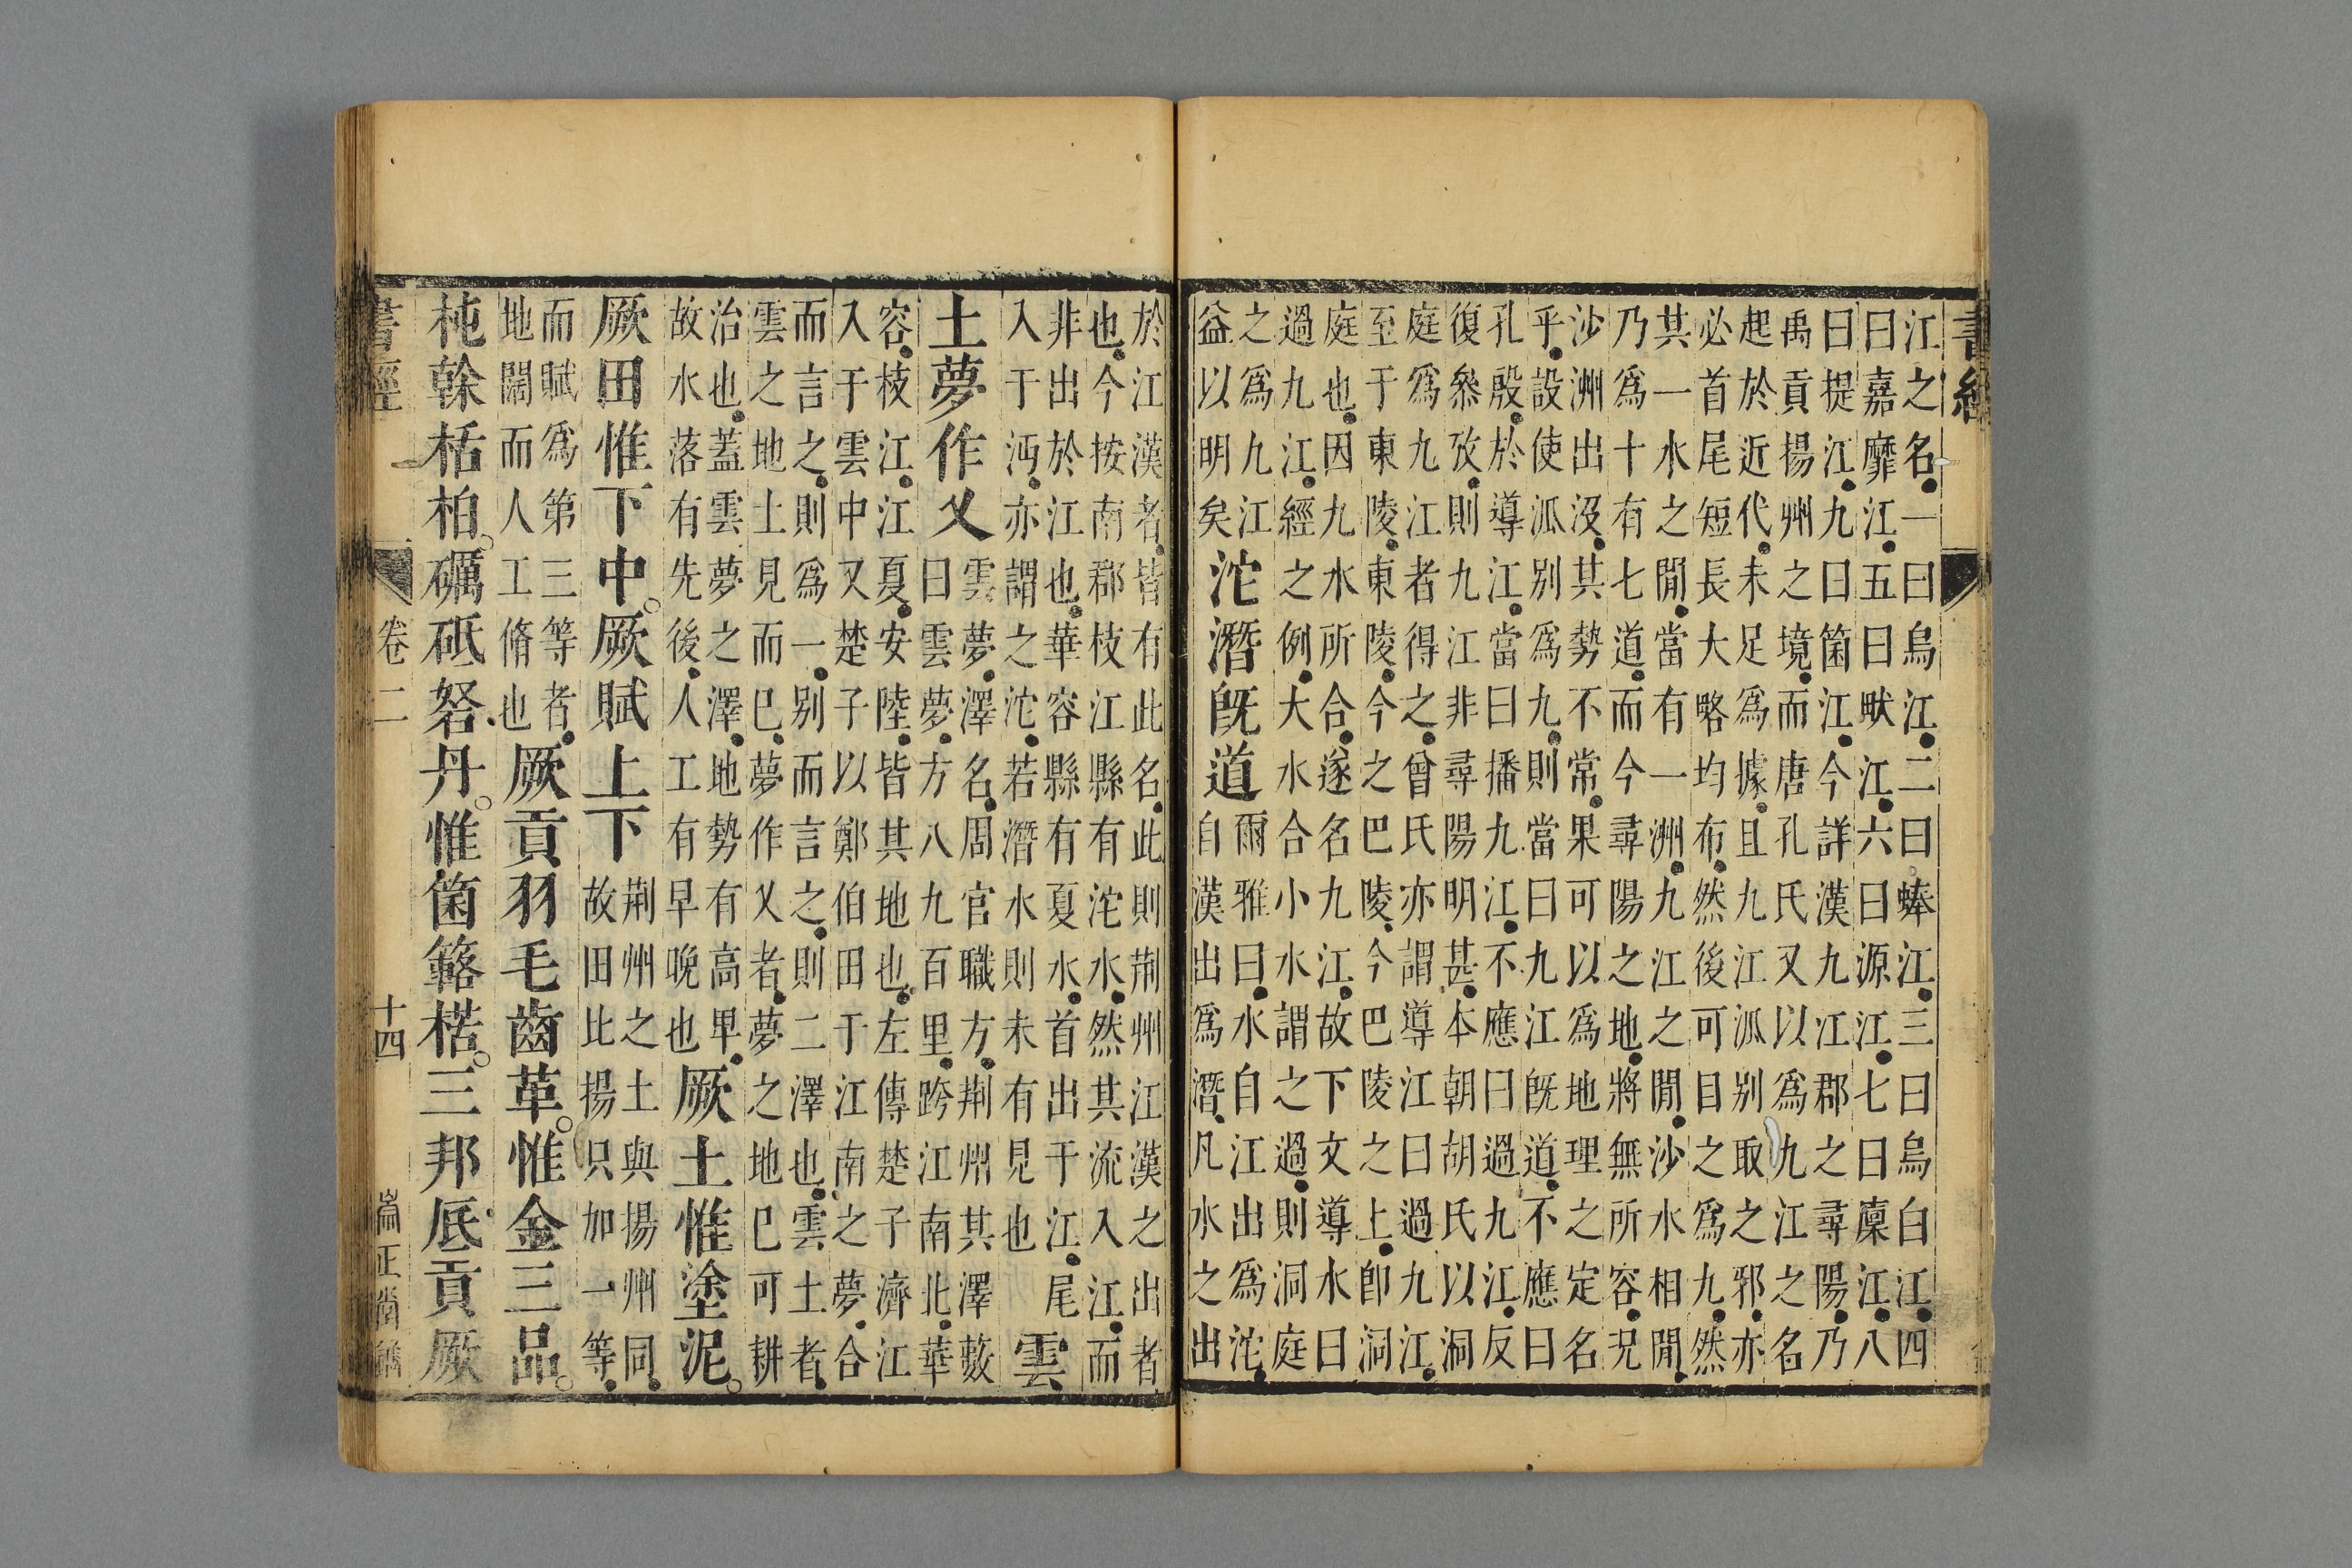 書經
江之名一曰烏江二曰蜯江三曰烏白江四
曰嘉靡江五曰畎江六曰源江七曰廩江八
曰提江九曰箘江今詳漢九江郡之尋陽乃
禹貢揚州之境而唐孔氏又以爲九江之名
起於近代未足爲據且九江派别取之邪亦
必首尾短長大略均布然後可目之爲九然
其一水之閒當有一洲九江之閒沙水相閒
乃爲十有七道而今尋陽之地將無所容况
沙洲出没其勢不常果可以爲地理之定名
乎設使派别爲九則當曰九江既道不應曰
孔殷於導江當曰播九江不應曰過九江反
復叅攷則九江非尋陽明甚本朝胡氏以洞
庭爲九江者得之曾氏亦謂導江曰過九江
至于東陵東陵今之巴陵今巴陵之上即洞
庭也因九水所合遂名九江故下文導水曰
過九江經之例大水合小水謂之過則洞庭
之爲九江
益以明矣
沱潛既道
爾雅曰水自江出爲沱
自漢出爲潛凡水之出
於江漢者皆有此名此則荆州江漢之出者
也今按南郡枝江縣有沱水然其流入江而
非出於江也華容縣有夏水首出于江尾
入于沔亦謂之沱若潛水則未有見也
雲
土夢作乂
雲夢澤名周官職方荆州其澤藪
曰雲夢方八九百里跨江南北華
容枝江江夏安陸皆其地也左傳楚子濟江
入于雲中又楚子以鄭伯田于江南之夢合
而言之則爲一别而言之則二澤也雲土者
雲之地土見而已夢作乂者夢之地已可耕
治也蓋雲夢之澤地勢有高早
故水落有先後人工有早晚也
厥土惟塗泥
厥田惟下中厥賦上下
荆州之土與揚州同
故田比揚只加一等
而賦爲第三等者
地闊而人工脩也
厥貢羽毛齒革惟金三品
杶榦栝柏礪砥砮丹惟箘簵楛三邦厎貢厥
書經
卷二
十四